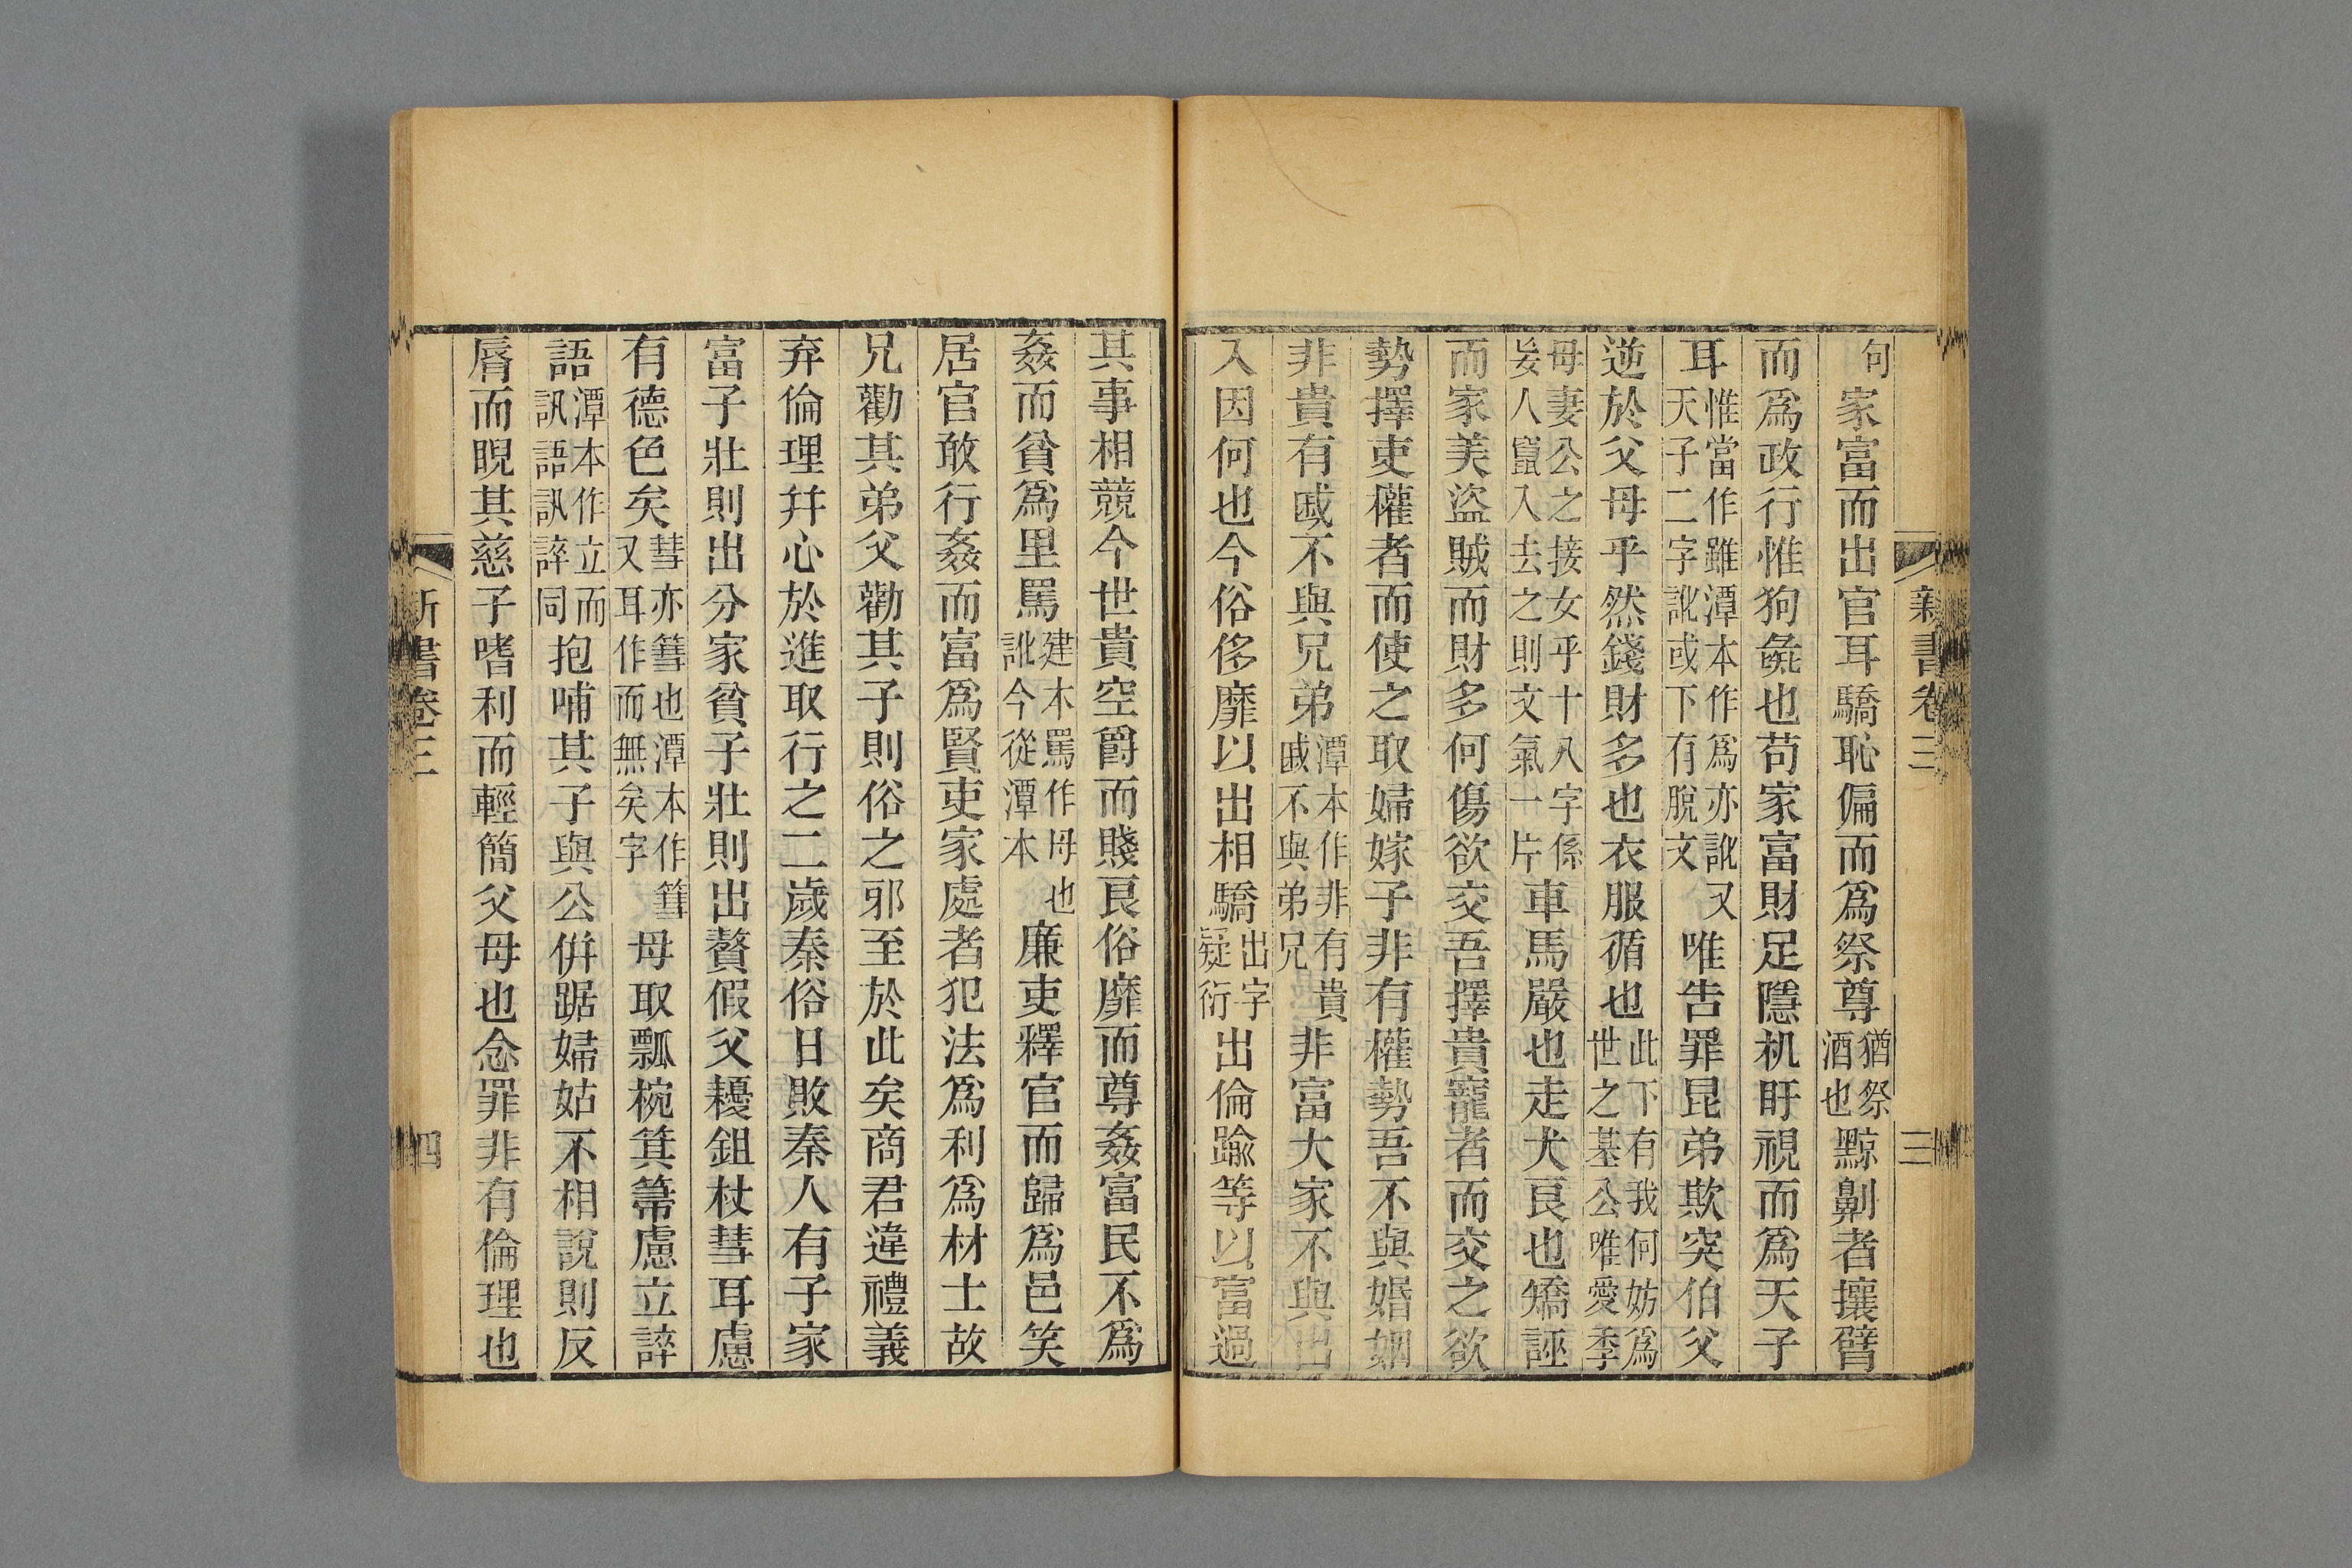 新書卷三
三
句家富而出官耳驕恥偏而爲祭尊猶祭酒也黥劓者攘臂
而爲政行惟狗彘也苟家富財足隱机盱視而爲天子
耳惟當作雖潭本作爲亦訛又天子二字訛或下有脫文唯告罪昆弟欺突伯父
逆於父母乎然錢財多也衣服循也此下有我何妨爲世之基公唯愛季
母妻公之接女乎十八字係妄人竄入去之則文氣一片車馬嚴也走犬良也矯誣
而家美盜賊而財多何傷欲交吾擇貴寵者而交之欲
勢擇吏權者而使之取婦嫁子非有權勢吾不與婚姻
非貴有戚不與兄弟潭本作非有貴戚不與弟兄非富大家不與出
入因何也今俗侈靡以出相驕出字疑衍出倫踰等以富過
其事相競今世貴空爵而賤良俗靡而尊姦富民不爲
姦而貧爲里罵建本罵作毋也訛今從潭本廉吏釋官而歸爲邑笑
居官敢行姦而富爲賢吏家處者犯法爲利爲材士故
兄勸其弟父勸其子則俗之邪至於此矣商君違禮義
弃倫理幷心於進取行之二歲秦俗日敗秦人有子家
富子壯則出分家貧子壯則出贅假父耰鉏杖彗耳慮
有德色矣彗亦篲也潭本作篲又耳作而無矣字母取瓢椀箕箒慮立誶
語潭本作立而訊語訊誶同抱哺其子與公倂踞婦姑不相說則反
脣而睨其慈子嗜利而輕簡父母也念罪非有倫理也
新書卷三
四